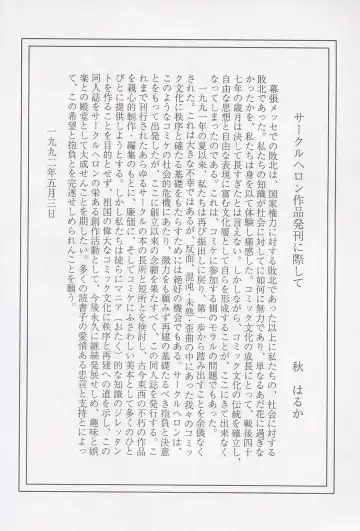 サークルヘロン作品発刊に際して
秋　はるか
幕張メッセでの敗北は、国家権力に対する敗北であった以上に私たちの、社会に対する
敗北であった。私たちの知識が社会に対して如何に無力であり、単なるあだ花に過ぎな
かったかを、私たちは身を以て体験し痛感した。コミック文化の成長にとって、戦後四十
七年の歳月は決して長すぎたとは言えない。しかしながら、コミック文化の伝統を確立し、
自由な思想と自由な表現に富む文化層として自らを形成することが、ここにきて出来なく
なってしまったのである。これは、コミケに参加する側のモラルの問題でもあった。
一九九一年の夏以来、私たちは再び振出しに戻り、第一歩から踏み出すことを余儀なく
された。これは大きな不幸ではあるが、反面、混沌・未熟・歪曲の中にあった我々のコミッ
ク文化に秩序と確たる基礎をもたらすためには絶好の機会でもある。サークルヘロンは、
このようなコミケの社会的危機にあたり、微力をも顧みず再建の礎たるべき抱負と決意
とをもって出発したが、ここに創立以来の念願を果たすべく、この同人誌を発行する。こ
れまで刊行されたあらゆるサークルの本の長所と短所とを検討し、古今東西の不朽の作品
を良心的制作・編集のもとに、廉価に、そしてコミケにふさわしい美本として多くのひと
びとに提供しようとする。しかし私たちは徒らにマニア（おたく）的な知識のジレッタン
トを作ることを目的とせず、祖国の偉大なコミック文化に秩序と再建への道を示し、この
同人誌をサークルヘロンの栄ある創作活動として、今後永久に継続発展せしめ、趣味と娯
楽との殿堂として大成せんことを期したい。多くの読書子の愛情ある忠言と支持とによっ
て、この希望と抱負とを完遂せしめられんことを願う。
一九九二年五月三日